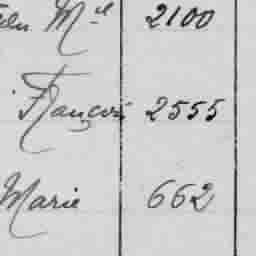 Mel 2100
François 2555
Marie 662